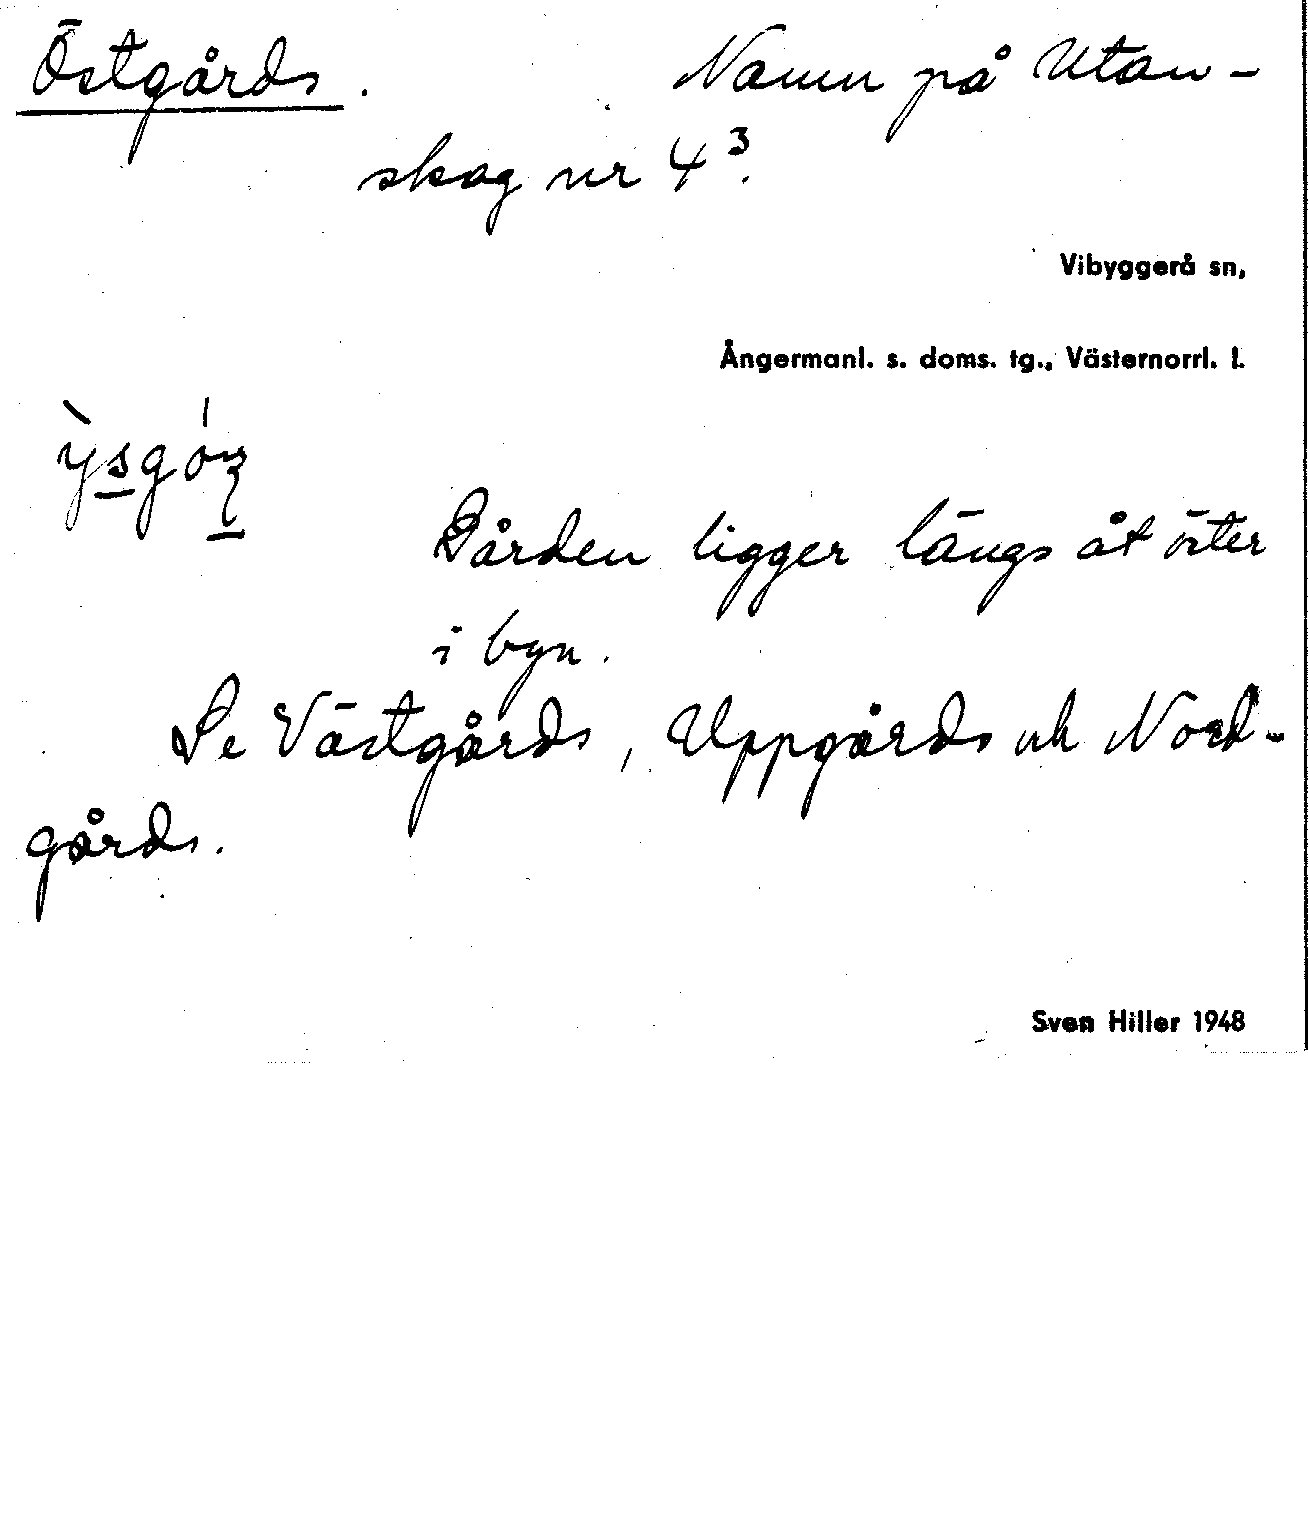 Östgårds. Namn på Utan-
skog nr 4³.
Vibyggerå sn,
Ångermanl. s. doms. tg., Västernorrl. l.
Gården ligger längs åt öster
i byn.
Se Västgårds, Uppgårds och Nord-
gårds.
Sven Hiller 1948